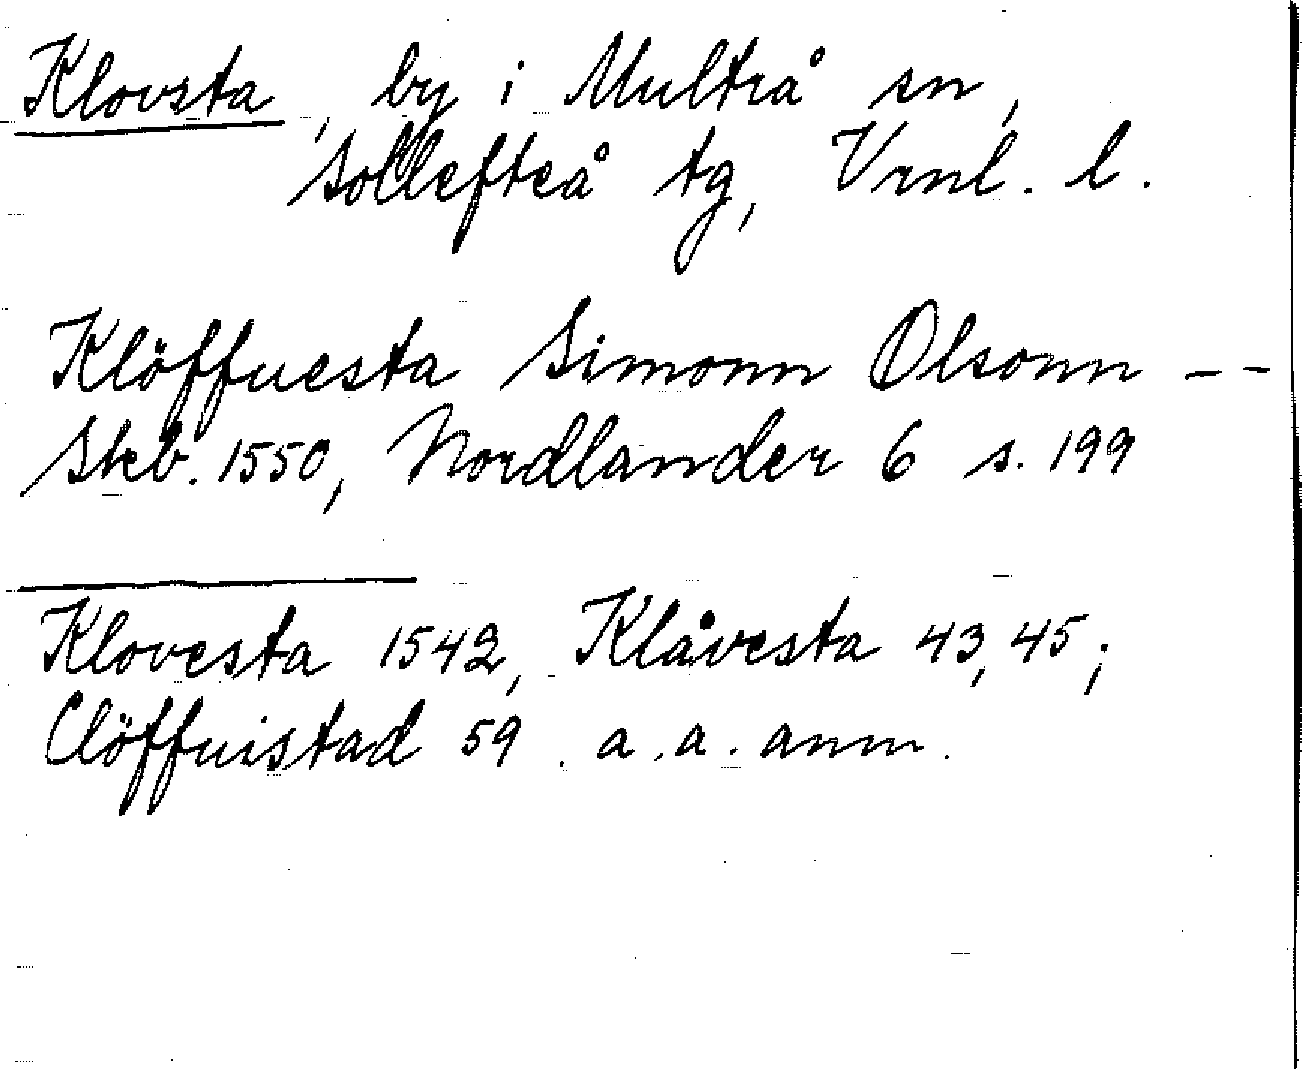 Klovsta, by i Multrå sn,
Sollefteå tg, Vrnl. l.
Klöffuesta Simonn Olsonn --
Skb. 1550, Nordlander 6 s. 199
Klovesta 1542, Klåvesta 43, 45;
Clöffuistad 59. a.a. anm.